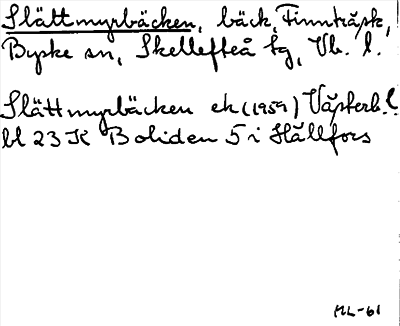 Slättmyrbäcken, bäck, Finnträsk,
Byske sn, Skellefteå tg, Vb. l.
Slättmyrbäcken ek (1959) Västerb. l.
bl 23 K Boliden 5 i Hällfors
ML-61